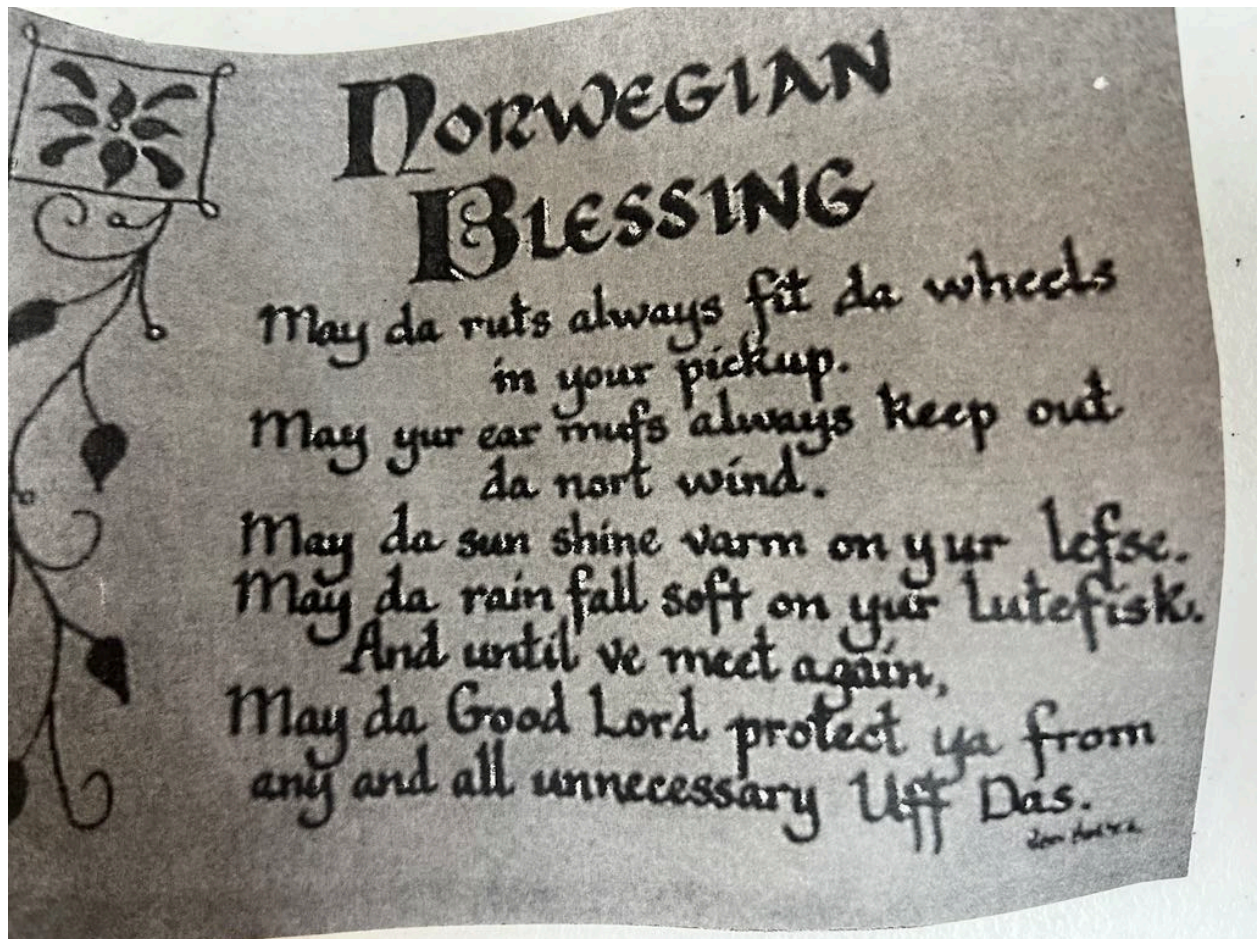 NORWEGIAN
BLESSING
May da ruts always fit da wheels
in your pickup.
May yur ear mufs always keep out
da nort wind.
May da sun shine varm on yur lefse.
May da rain fall soft on yur Lutefisk.
And until ve meet again,
May da Good Lord protect ya from
any and all unnecessary Uff Das.